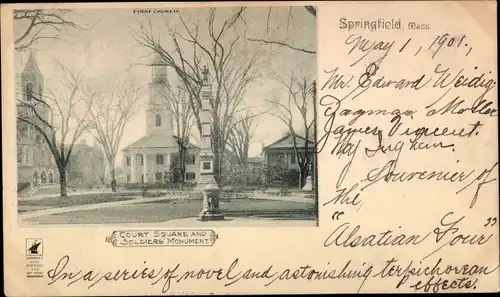 FIRST CHURCH
Springfield, Mass.
May 1, 1901.
Mr. Edward Weidig
James Vincent
Ingham
Souvenir of
The
"Alsatian Four"
COURT SQUARE AND
SOLDIERS' MONUMENT.
In a series of novel and astonishing terpsichorean
effects.